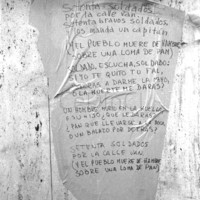 Setenta soldados
por la calle van.
Setenta bravos soldados
los manda un capitán
¡EL PUEBLO MUERE DE HAMBRE
SOBRE UNA LOMA DE PAN!
ESCUCHA, SOLDADO:
SI YO TE QUITO TU FAL,
A DARME LA MANO
O LA MUERTE ME DARAS?
UN HOMBRE MUERTO EN LA
Y SU HIJO, QUE LE DARAS?
¿PAN QUE LLEVARSE A LA BOCA
O UN BALAZO POR DETRAS?
SETENTA SOLDADOS
POR LA CALLE VAN
¡EL PUEBLO MUERE DE HAMBRE
SOBRE UNA LOMA DE PAN!